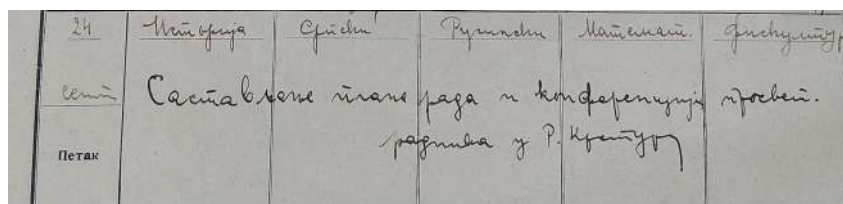 24 Историја Српски Русински Математ. Фискултур
септ Састављање плана рада и конференција просвет.
Петак радника у Р. Крстуру